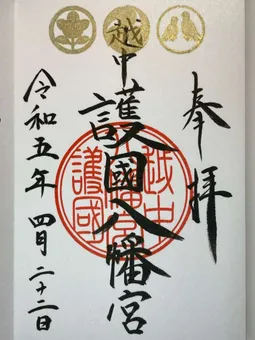 奉拝
越中護國八幡宮
令和五年 四月二十二日
越中
護國